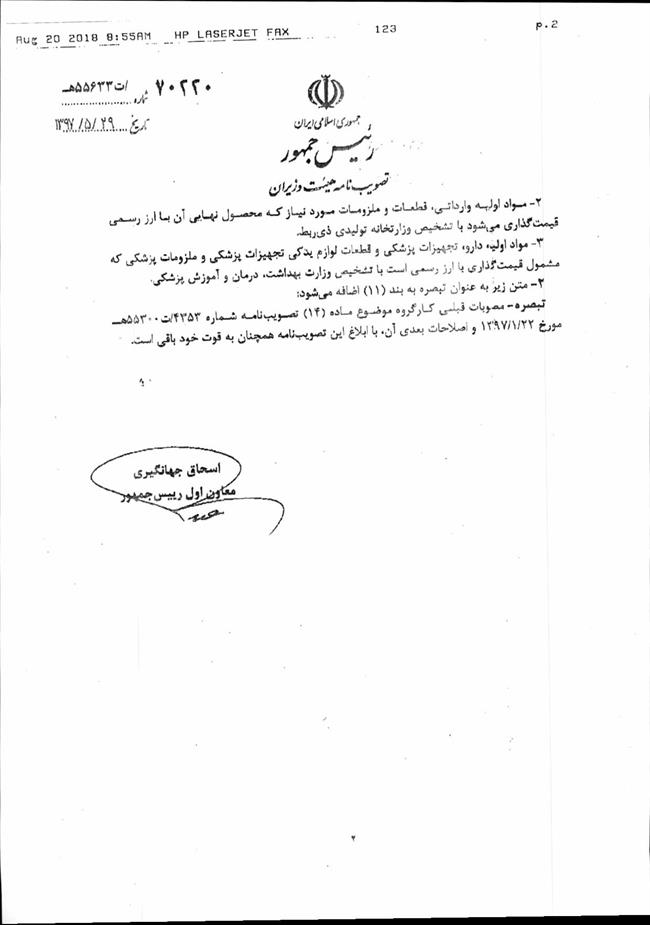 Aug 20 2018 8:55AM HP LASERJET FAX 123 p.2
۷۰۲۲۰/ت۵۵۶۳۳هـ
شماره
تاریخ ۱۳۹۷/۵/۲۹
جمهوری اسلامی ایران
رئیس جمهور
تصویب نامه هیئت وزیران
۲- مواد اولیه وارداتی، قطعات و ملزومات مورد نیاز که محصول نهایی آن با ارز رسمی
قیمت‌گذاری می‌شود با تشخیص وزارتخانه تولیدی ذی‌ربط.
۳- مواد اولیه، دارو، تجهیزات پزشکی و قطعات لوازم یدکی تجهیزات پزشکی و ملزومات پزشکی که
مشمول قیمت‌گذاری با ارز رسمی است با تشخیص وزارت بهداشت، درمان و آموزش پزشکی.
۲- متن زیر به عنوان تبصره به بند (۱۱) اضافه می‌شود:
تبصره- مصوبات قبلی کارگروه موضوع ماده (۱۴) تصویب‌نامه شماره ۴۳۵۳/ت۵۵۳۰۰هـ
مورخ ۱۳۹۷/۱/۲۲ و اصلاحات بعدی آن، با ابلاغ این تصویب‌نامه همچنان به قوت خود باقی است.
اسحاق جهانگیری
معاون اول رییس‌جمهور
۲